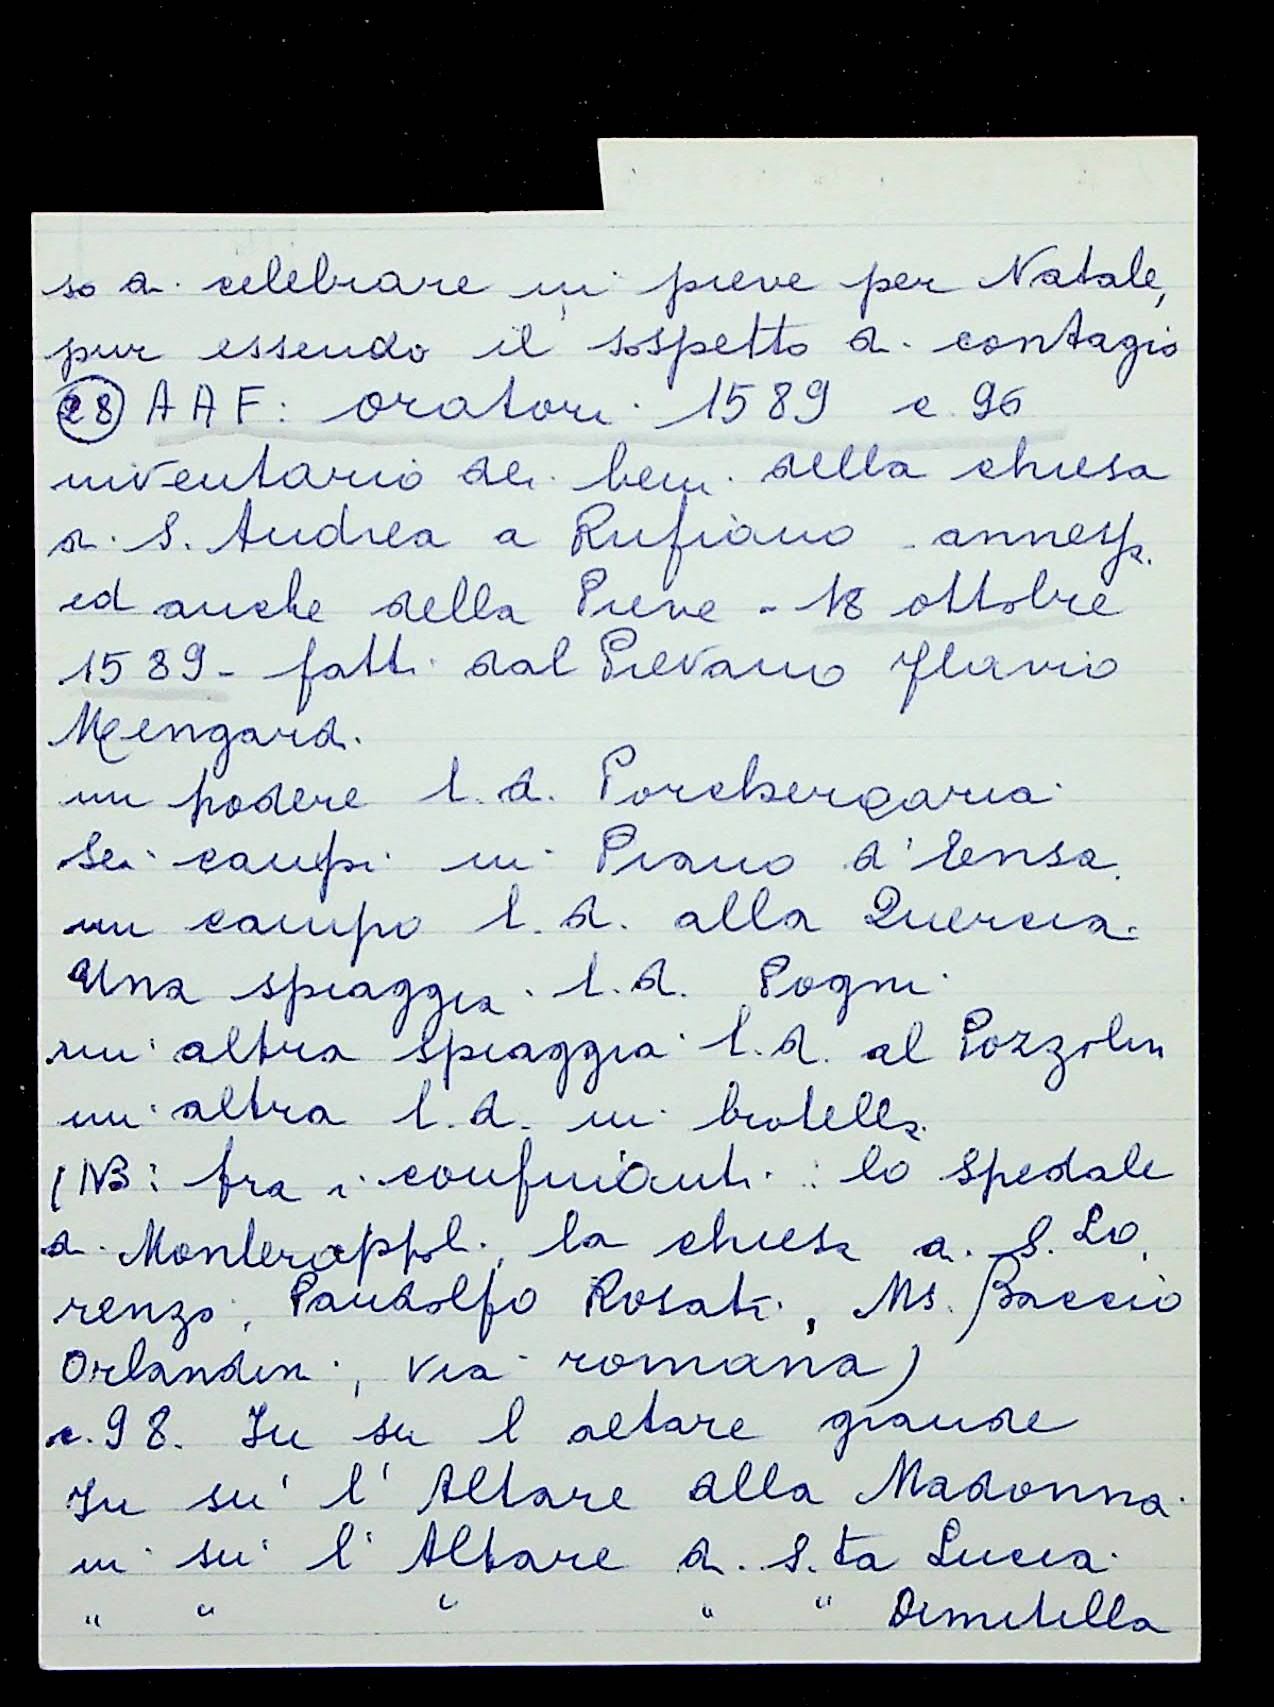 so di celebrare in pieve per Natale,
pur essendo il sospetto di contagio
28 AAF: oratori 1589 c. 96
inventario dei beni della chiesa
di S. Andrea a Rufiano - annessa
ed anche della Pieve - 18 ottobre
1589 - fatti dal Pievano Flavio
Mengardi
un podere l.d. Porcheregaria
Sei campi in Piano d'Elensa
un campo l.d. alla Quercia
Una spiaggia l.d. Pogni
un' altra spiaggia l.d. al Pozzolin
un altra l.d. in brotella
(NB: fra i confinanti: lo Spedale
di Monterappoli, la chiesa di S. Lo
renzo, Pandolfo Rosati, Ms. Baccio
Orlandini, via romana)
c. 98. In su l altare grande
In su l' Altare alla Madonna
in su l' Altare di S.ta Lucia
" " " " " Dimitella